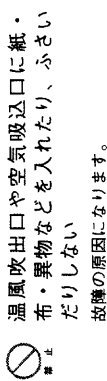 禁止
温風吹出口や空気吸込口に紙・
布・異物などを入れたり、ふさい
だりしない
故障の原因になります。